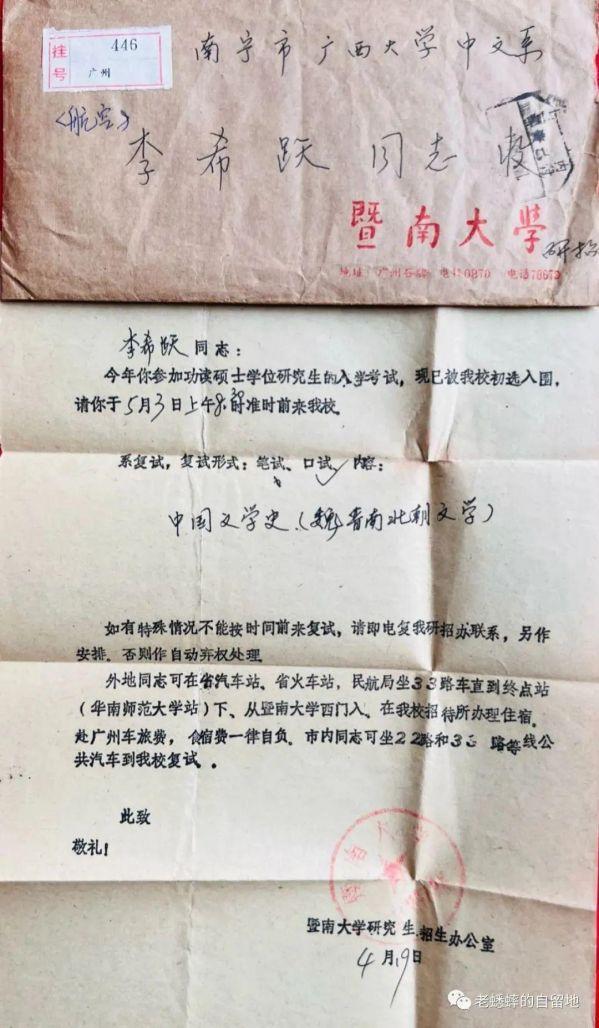 挂号 446
广州
南宁市广西大学中文系
〈航空〉
李希跃同志收
暨南大学
研招
地址 广州石牌 电挂0870 电话78673
李希跃同志:
今年你参加功读硕士学位研究生的入学考试,现已被我校初选入围,
请你于5月3日上午8时前准时前来我校
系复试,复试形式:笔试、口试✓内容:
中国文学史(魏晋南北朝文学)
如有特殊情况不能按时间前来复试,请即电复我研招办联系,另作
安排。否则作自动弃权处理。
外地同志可在省汽车站、省火车站,民航局坐33路车直到终点站
(华南师范大学站)下、从暨南大学西门入。在我校招待所办理住宿。
赴广州车旅费,食宿费一律自负。市内同志可坐22路和33路等线公
共汽车到我校复试。
此致
敬礼!
暨南大学研究生招生办公室
4月19日
老蟋蟀的自留地